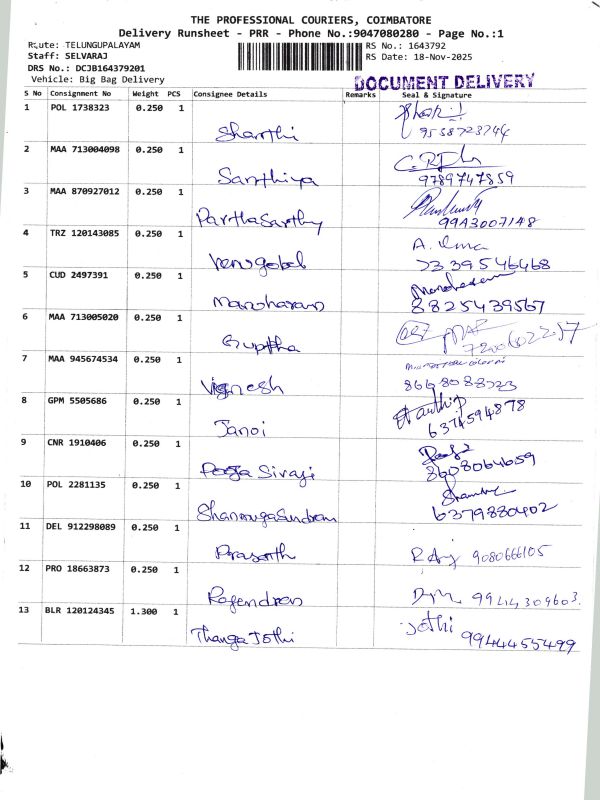 THE PROFESSIONAL COURIERS, COIMBATORE
Delivery Runsheet - PRR - Phone No.:9047080280 - Page No.:1
Route: TELUNGUPALAYAM RS No.: 1643792
Staff: SELVARAJ RS Date: 18-Nov-2025
DRS No.: DCJB164379201
Vehicle: Big Bag Delivery DOCUMENT DELIVERY
S No Consignment No Weight PCS Consignee Details Remarks Seal & Signature
1 POL 1738323 0.250 1
Sharthi 9538723744
2 MAA 713004098 0.250 1
Santhiya 9789747859
3 MAA 870927012 0.250 1
ParthaSarthy 99A3007148
4 TRZ 120143085 0.250 1 A. Uma
Venugobal 7339546468
5 CUD 2497391 0.250 1 Manoharan
Manoharan 8825439567
6 MAA 713005020 0.250 1
Guptha
7 MAA 945674534 0.250 1
Vignesh 8668088723
8 GPM 5505686 0.250 1
Janoi 6374594878
9 CNR 1910406 0.250 1
Pooja Sivaji 8608064659
10 POL 2281135 0.250 1
ShanmugaSundram 6379880402
11 DEL 912298089 0.250 1
Prasanth 9080666105
12 PRO 18663873 0.250 1
Rajendran 9944309603
13 BLR 120124345 1.300 1 Jothi
Thanga Jothi 9944455499